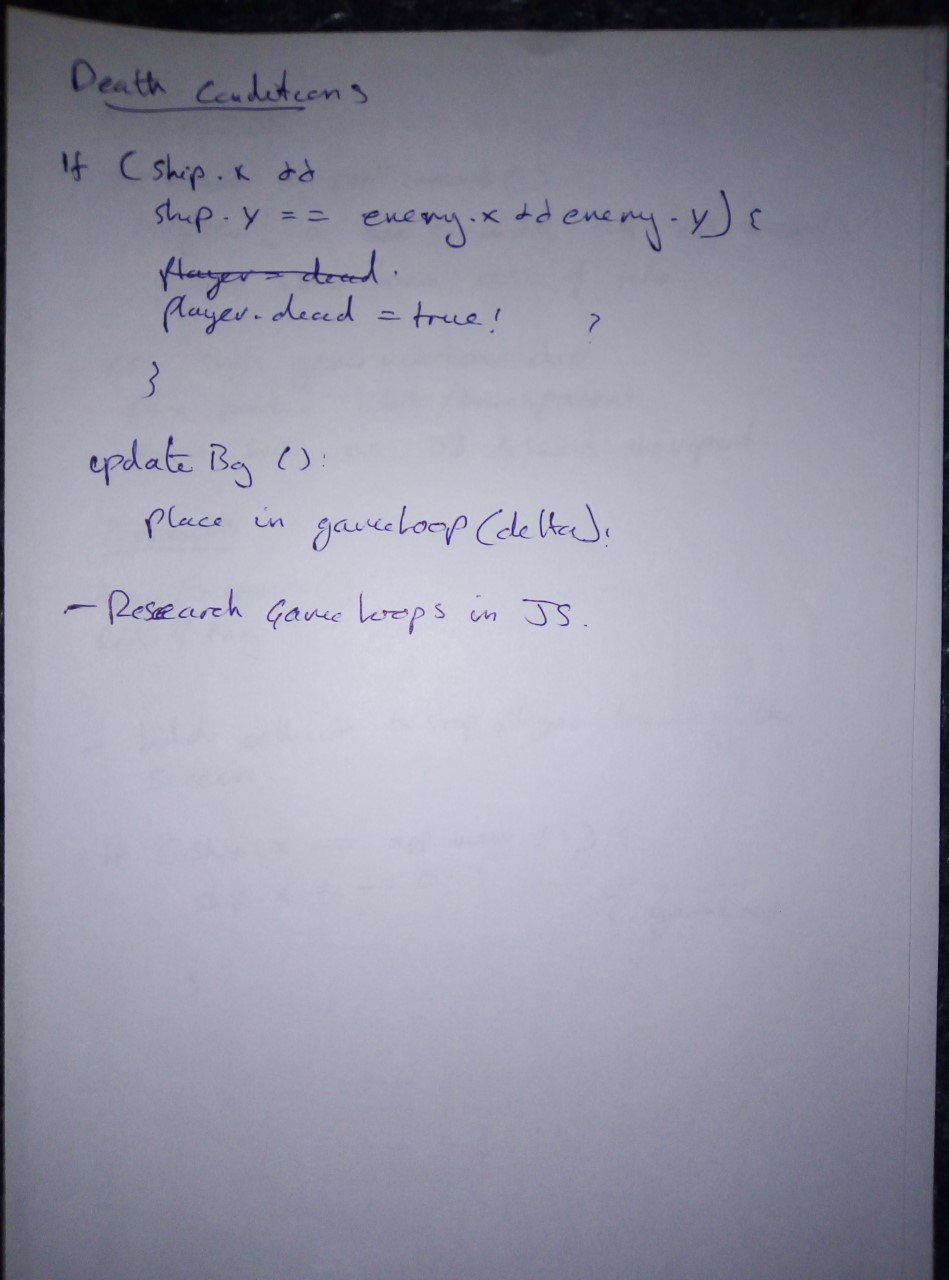 Death Conditions
If (ship.x &&
ship.y == enemy.x && enemy.y) {
player = dead.
player.dead = true; ?
}
updateBg ():
place in gameloop(delta);
- Research Game loops in JS.